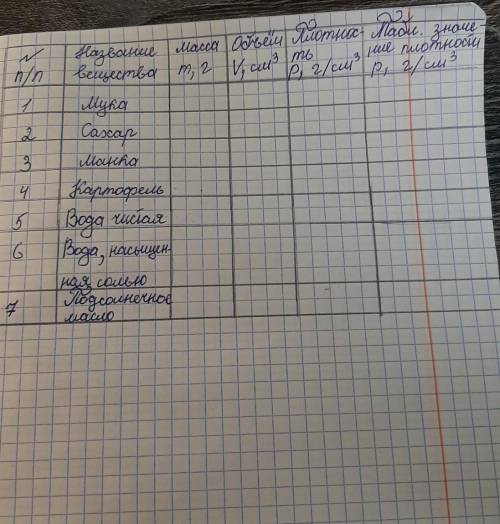 № п/п Название вещества Масса m, г Объём V, см³ Плотнос-ть ρ, г/см³ Табл. значе-ние плотности ρ, г/см³
1 Мука
2 Сахар
3 Манка
4 Картофель
5 Вода чистая
6 Вода, насыщен-
ная солью
7 Подсолнечное
масло